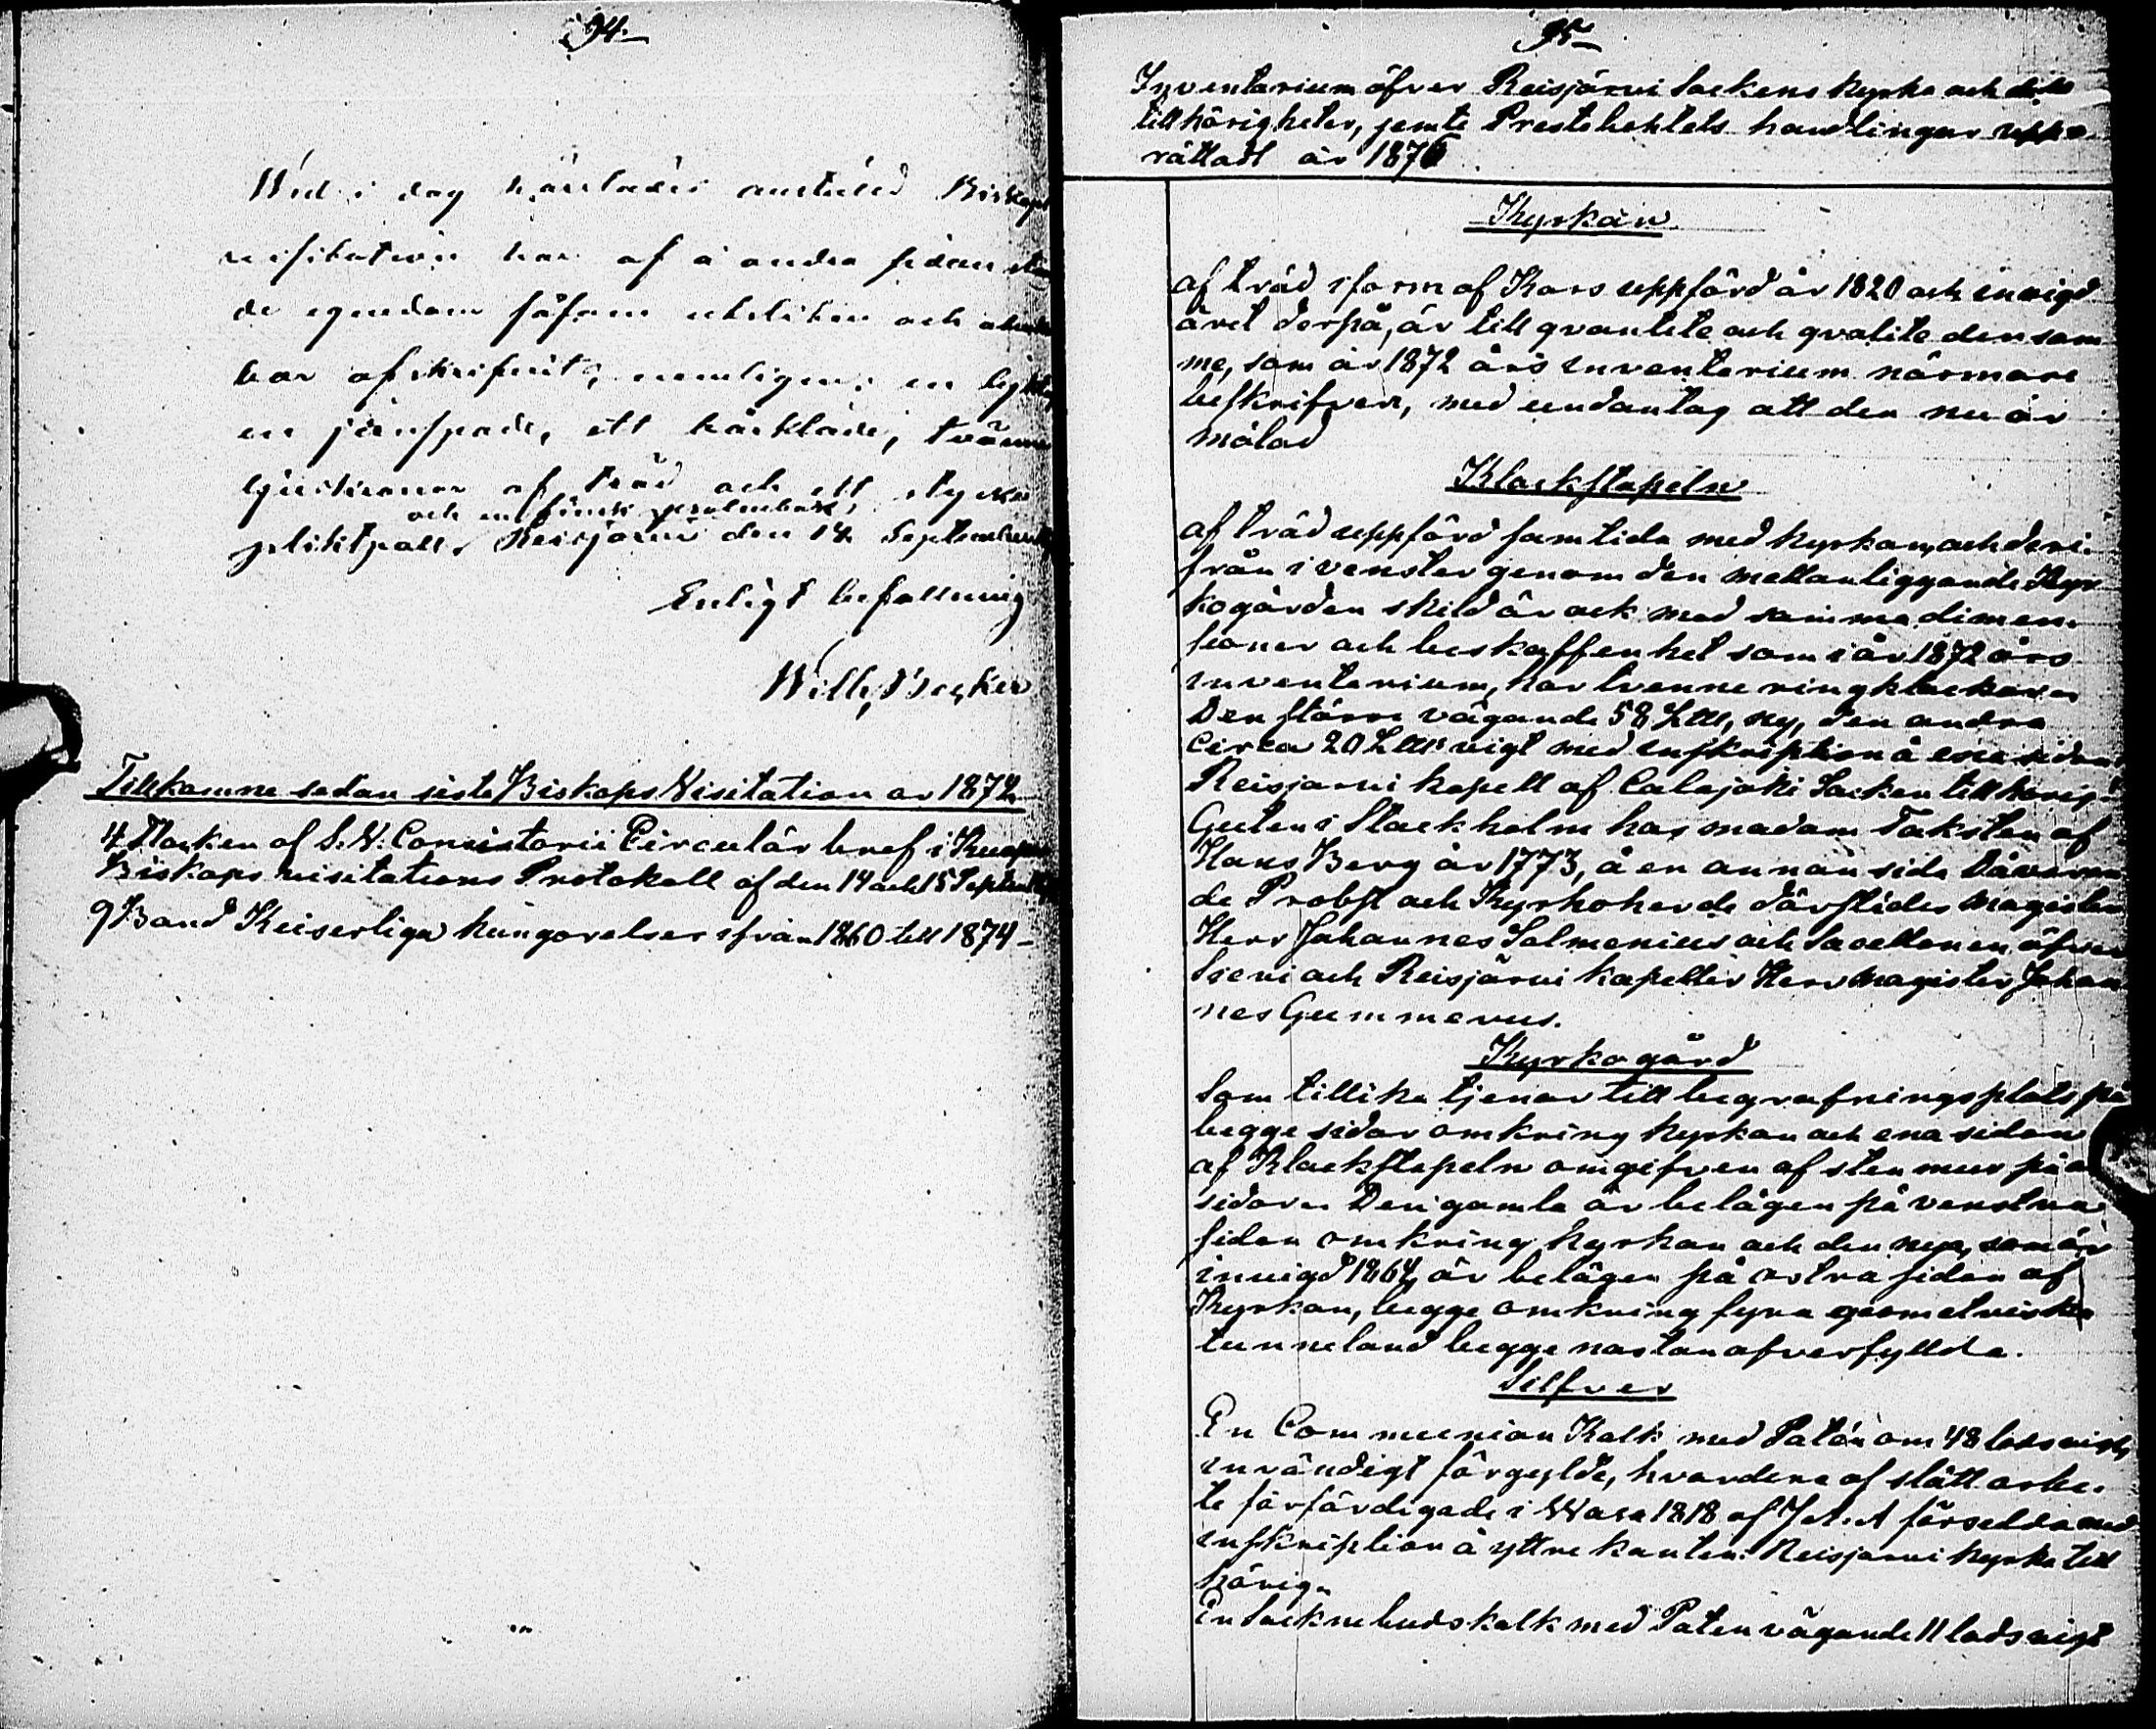 94.
Wid i dag härstädes anstäld Biskops
visitation har af å andra sidan
de egendom såsom
bar afskrifvits, nemligen: en lykta,
en jernspade, ett bårkläde, tvänne
ljuskronor af träd och ett stycke
och en finsk psalmbok,
pliktpall. Reisjärvi den 14 September
Enligt befallning
Willh, Becker
Tillkomne sedan siste Biskops Visitation år 1874
4 Stycken af S. V. Consistorii Circulär bref i Kuopio
Biskops visitations Protokoll af den 14 och 15 September
9 Band Keiserliga kungörelser ifrån 1860 till 1874 –
95
Inventarium öfver Reisjärvi Sockens Kyrka och dess
tillhörigheter, jemte Presterskapets handlingar upp-
rättadt år 1876
Kyrkan
af träd i form af Kors uppförd år 1820 och invigd
året derpå, är till qvantite och qvalite densam
me, som är 1872 års inventarium närmare
beskrifven, med undantag att den nu är
målad
Klockstapeln
af träd uppförd samtida med kyrkan, och deri-
från i venster genom den mellanliggande Kyr
kogården skild är ock med samma dimen-
sioner och beskaffenhet som i år 1872 års
inventarium, har tvenne ringklockor.
Den större vägande 58 L℔, ny, den andra
circa 20 L℔ vigt med inskription å ena sidan:
Reisjärvi kapell af Calajoki Socken tillhörig.
Guten i Stockholm hos madam Taksten af
Hans Berg år 1773, å en annan sida Dåvaran
de Probst och Kyrkoherde därstädes Magister
Herr Johannes Salmenius och Sacellanen öfver
Sievi och Reisjärvi kapeller Herr Magister Johan
nes Gummerus.
Kyrkogård
Som tillika tjenar till begrafningsplats på
begge sidor omkring kyrkan och ena sidan
af Klockstapeln omgifven af sten mur på
sidorn Den gamla är belägen på venstra
sidan omkring kyrkan och den nya, som är
invigd 1864, är belägen på östra sidan af
Kyrkan, begge omkring fyra geometriska
tunneland begge nästan öfverfyllda.
Silfver
En Communion Kalk med Patén om 48 lods vigt,
invändigt förgylde, hvardera af slätt arbe-
te förfärdigade i Wasa 1818 af J. A. A försedda med
inskription å yttre kanten: Reisjärvi kyrka till
hörig.
En Sockne budskalk med Paten vägande 11 lods vigt